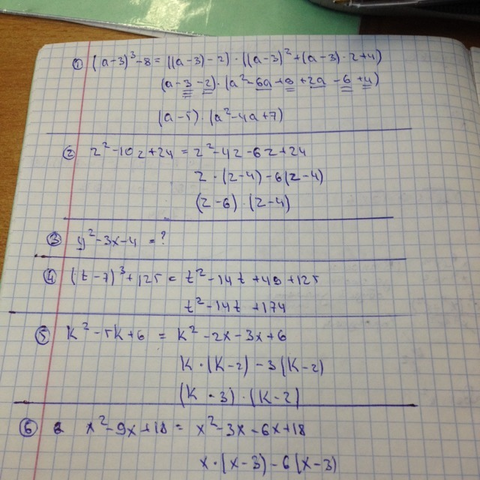 ① (a-3)³-8 = ((a-3)-2)·((a-3)²+(a-3)·2+4)
(a-3-2)·(a²-6a+9+2a-6+4)
(a-5)·(a²-4a+7)
② z²-10z+24 = z²-4z-6z+24
z·(z-4)-6(z-4)
(z-6)·(z-4)
③ y²-3x-4 = ?
④ (t-7)³+125 = t²-14t+49+125
t²-14t+174
⑤ k²-5k+6 = k²-2x-3x+6
k·(k-2)-3(k-2)
(k-3)·(k-2)
⑥ x²-9x+18 = x²-3x-6x+18
x·(x-3)-6(x-3)